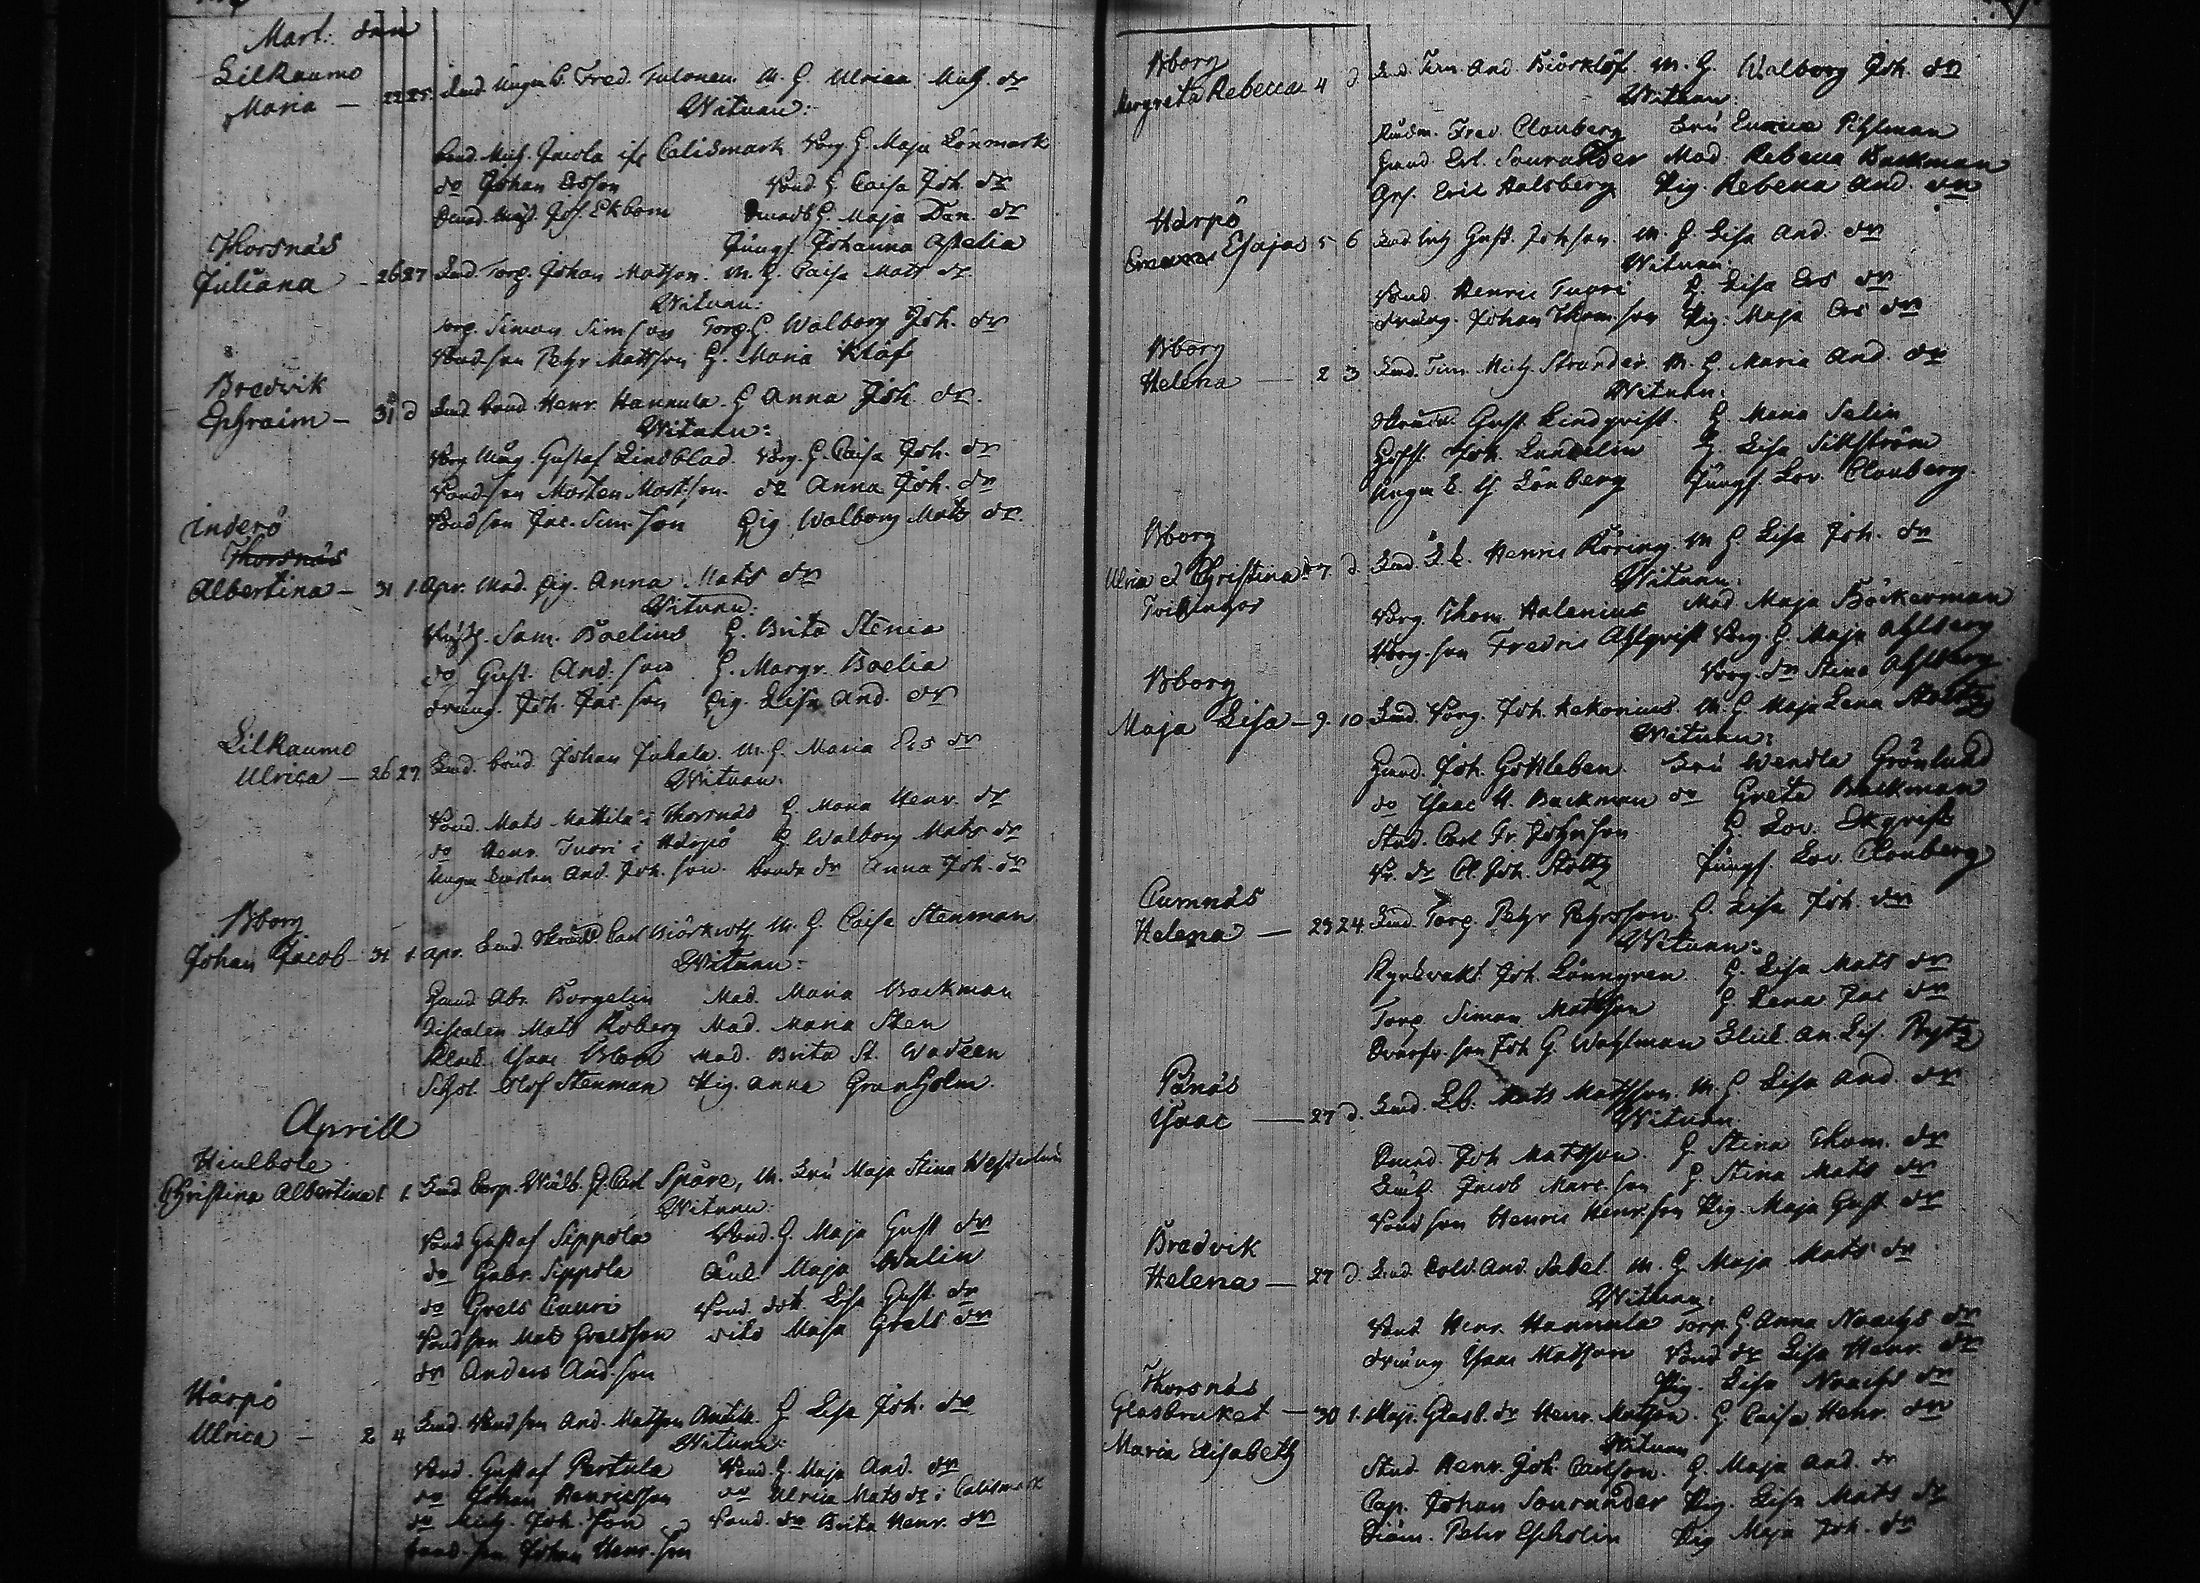 Mart: den
Lilkaumo
Maria — 22 25. Ungm. C. Fred. Tulonen. M. H. Ulrica Mich. dr
Witnen:
bond. Mich. Jacola i Calismark Borg. H. Maja Lönmark
do Johan Ersson Bond. H. Caisa Joh. dr
Joh. Ekbom H. Maja Dan. dr
Jungf. Johanna Aspelia
Thorsnäs
Juliana — 26 27 Torp. Johan Matsson. M. H. Caisa Mats dr
Witnen:
Torp. Simon Simsson Torp. H. Walborg Joh. dr
Bondson Pehr Mattsson H. Maria Klöf
Bredvik
Ephraim — 31 d bond. Henr. Hannula. H Anna Joh. dr.
Witnen:
Borg Gustaf Lindblad. Borg. H. Caisa Joh. dr
Bondson Morten Mortsson. dr Anna Joh. dr
Bondson Jac. Simsson Pig. Walborg Mats dr.
Inderö
Thorsnäs
Albertina — 31 1. Apr. Mod. Pig. Anna Mats dr
Witnen:
Sam. Boelius H. Brita Stenia
do Gust. And. son H. Margr. Boelia
dräng. Joh. Jac. son Pig. Lisa And. dr
Lilkaumo
Ulrica — 26 27. bond. Johan Jakala. M. H. Maria Ers dr
Witnen.
Bond. Mats Mattila i Thorsnäs H. Maria Henr. dr
do Henr. Tuori i Härpö H. Walborg Mats dr
And. Joh. son. bonde dr Anna Joh. dr
Bborg
Johan Jacob — 31 1. Apr. Carl Biörkroth M. H. Caisa Stenman
Witnen:
Hand. Abr. Borgelin Mad. Maria Backman
Fiscalen Mats Roberg Mad. Maria Sten
Isaac Blom Mad. Brita St. Wadeen
Schol. Olof Stenman Pig. Anna Granholm.
Aprill
Hiulbole
Christina Albertina 1. 1. Corp. H. Carl Spåre, M. Fru Maja Stina
Witnen:
Bond Gustaf Sippola Bond. H. Maja Gust dr
do Gabr. Sippola Maja Walin
do Grels Cauri Bond. dott. Lisa Gust. dr
Bondson Mats Grelsson dito Maja Grels dr
do Anders And. son
Härpö
Ulrica — 2 4 Bondson And. Matsson Antila. H Lisa Joh. dr
Witnen:
Bond. Gustaf Pertula Bond. H. Maja And. dr
do Johan Henricsson do Ulrica Mats dr i Calismark
do Mich. Joh. son Bond. dr Brita Henr. dr
bond. son Johan Henr. son
Bborg
Margreta Rebecca 4 d Tim. And. Biörklöf M. H. Walborg Joh. dr
Witnen:
Fred. Clouberg Fru Pihlman
Hand Erl. Sourander Mad. Rebecca Backman
Ges. Eric Halsberg Pig. Rebecca And. dr
Härpö
Esajas 5 6 Gust. Johsson. M. H Lisa And. dr
Witnen:
Bond Henric Tuori H. Lisa Ers dr
dräng. Johan Thomsson Pig. Maja Ers dr
Bborg
Helena — 2 3 Tim. Mich. Strander M. H Maria And. dr
Witnen:
Gust. Lindqvist. H. Maria Salin
Joh. Lundelin H Lisa Sillström
Ungm. Lönberg Jungf. Lov. Clouberg.
Bborg
Ulrica et Christina 7. d. Henric Röring. M H. Lisa Joh. dr
Tvillingar Witnen:
Borg. Thom. Halenius Mad Maja Böckerman
Borg. son Fredric Ahlqvist Borg. H. Maja Ahlberg
Borg. dr Stina Ahlberg
Bborg
Maja Lisa — 9. 10 Borg. Joh. Kekonius M. H Maja Lena Stoltz
Witnen:
Hand. Joh. Gottleben Fru Wendla Grönlund
do Isaac H. Backman do Greta Backman
Stud. Carl Fr. Johnsson H Lov. Ekqvist
Cl. Joh. Stoltz Jungf. Lov. Clouberg
Cumnäs
Helena — 23 24 Torp. Pehr Pehrsson. H. Lisa Joh. dr
Witnen:
Kyrkvakt. Joh. Lönngren H. Lisa Mats dr
Torp. Simon Mattsson H Lena Jac dr
son Joh. G. Wahlman An. Lis. Prytz
Panäs
Isaac — 27 d. Mats Mattsson. M. H Lisa And. dr
Witnen.
Joh. Mattsson. H. Stina Thom. dr
Jacob Marc. son H. Stina Mats dr
Bondson Henric Henrsson Pig. Maja Gust dr
Bredvik
Helena — 27 d. And. Sabel M. H Maja Mats dr
Witnen:
Bond Henr. Hannula Torp. H Anna Noachs dr
dräng Isaac Matsson Bond dr Lisa Henr. dr
Pig. Lisa Noachs dr
Thorsnäs
Glasbruket — 30 1. Maji. Glasb. dr Henr. Matsson. H. Caisa Henr. dr
Maria Elisabeth Witnen
Stud. Henr. Joh. Carlsson. H. Maja And. dr
Cap. Johan Sourander Pig. Lisa Mats dr
Pehr Ekholin Pig Maja Joh. dr